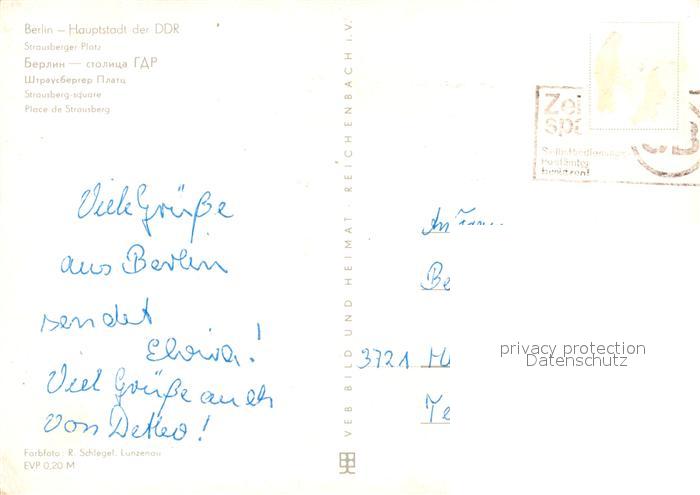 Berlin – Hauptstadt der DDR
Strausberger Platz
Берлин — столица ГДР
Штраусбергер Платц
Strausberg-square
Place de Strausberg
Viele Grüße
aus Berlin
sendet
Viel Grüße auch
von
Farbfoto: R. Schlegel, Lunzenau
EVP 0,20 M
VEB BILD UND HEIMAT · REICHENBACH I. V.
Selbstbedienungs
Postämter
benutzen!
An Fam.
Be
3721
Te
privacy protection
Datenschutz